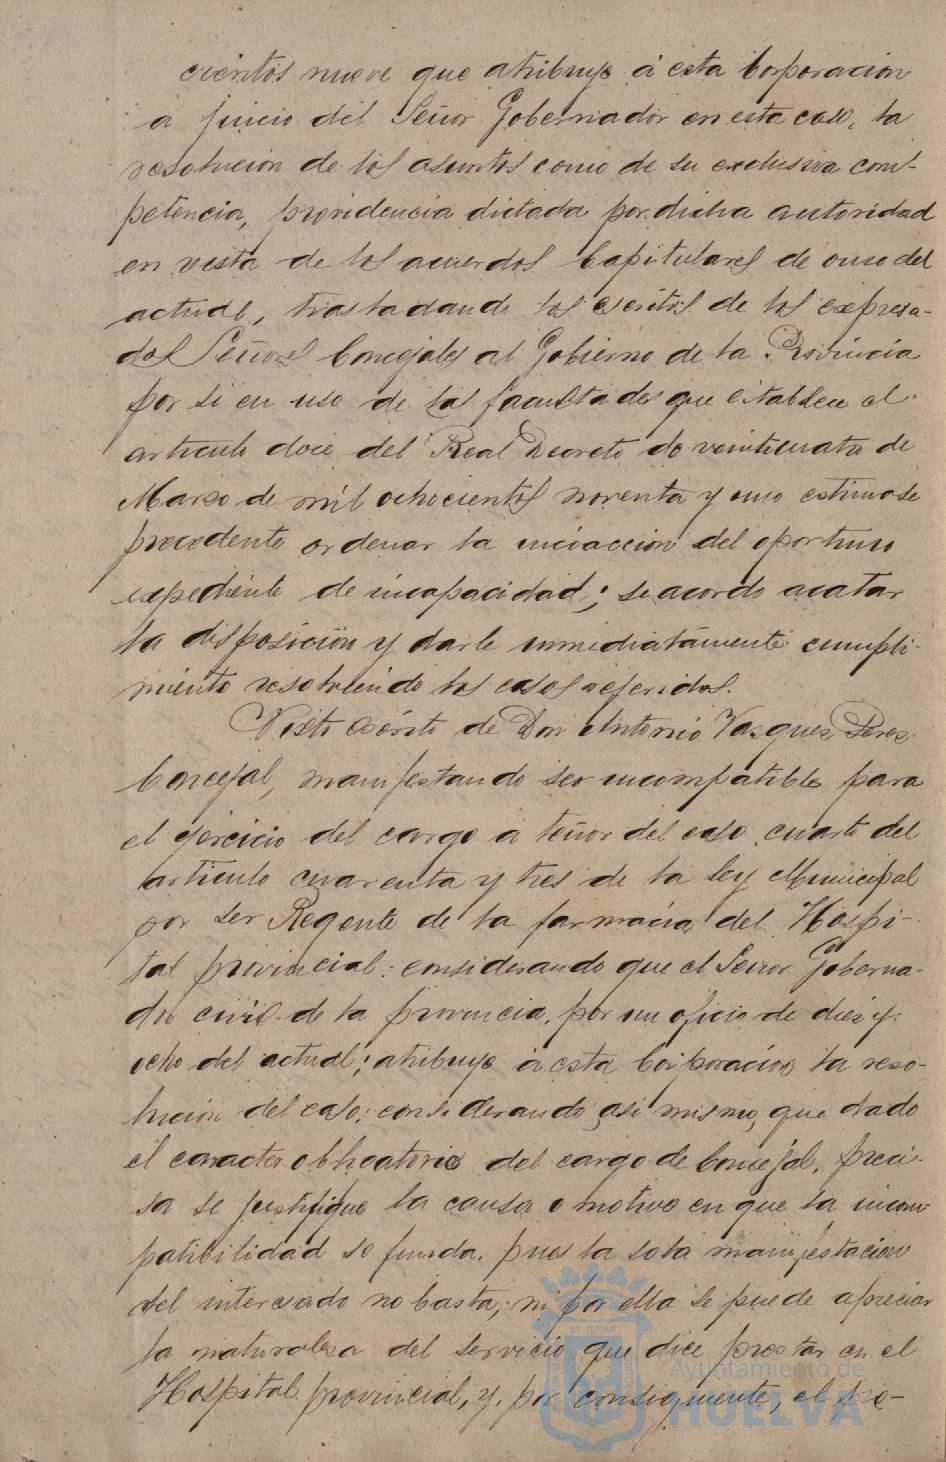 cientos nueve que atribuye á esta Corporacion
a juicio del Señor Gobernador en este caso, la
resolucion de los asuntos como de su exclusiva com-
petencia, providencia dictada por dicha autoridad
en vista de los acuerdos Capitulares de once del
actual, trasladando los escritos de los expresa-
dos Señores Concejales al Gobierno de la Provincia
por si en uso de las facultades que establece el
articulo doce del Real Decreto de veinticuatro de
Marzo de mil ochocientos noventa y uno estimase
procedente ordenar la incoaccion del oportuno
expediente de incapacidad; se acordo acatar
la disposición y darle inmediatamente cumpli-
miento resolviendo los casos referidos.
Visto escrito de Don Antonio Vasquez Perez
Concejal, manifestando ser incompatible para
el ejercicio del cargo a teñor del caso cuarto del
articulo cuarenta y tres de la ley Municipal
por ser Regente de la farmacia del Hospi-
tal provincial: considerando que el Señor Goberna-
dor civil de la provincia, por un oficio de diez y
ocho del actual; atribuye á esta Corporacion la reso-
lucion del caso: considerando, asi mismo, que dado
el caracter obligatorio del cargo de Concejal, preci-
sa se justifique la causa o motivo en que la incom
patibilidad se funda, pues la sola manifestacion
del interesado no basta, ni por ella se puede apreciar
la naturaleza del servicio que dice prestar en el
Hospital provincial, y, por consiguiente, el pre-
Ayuntamiento de
HUELVA